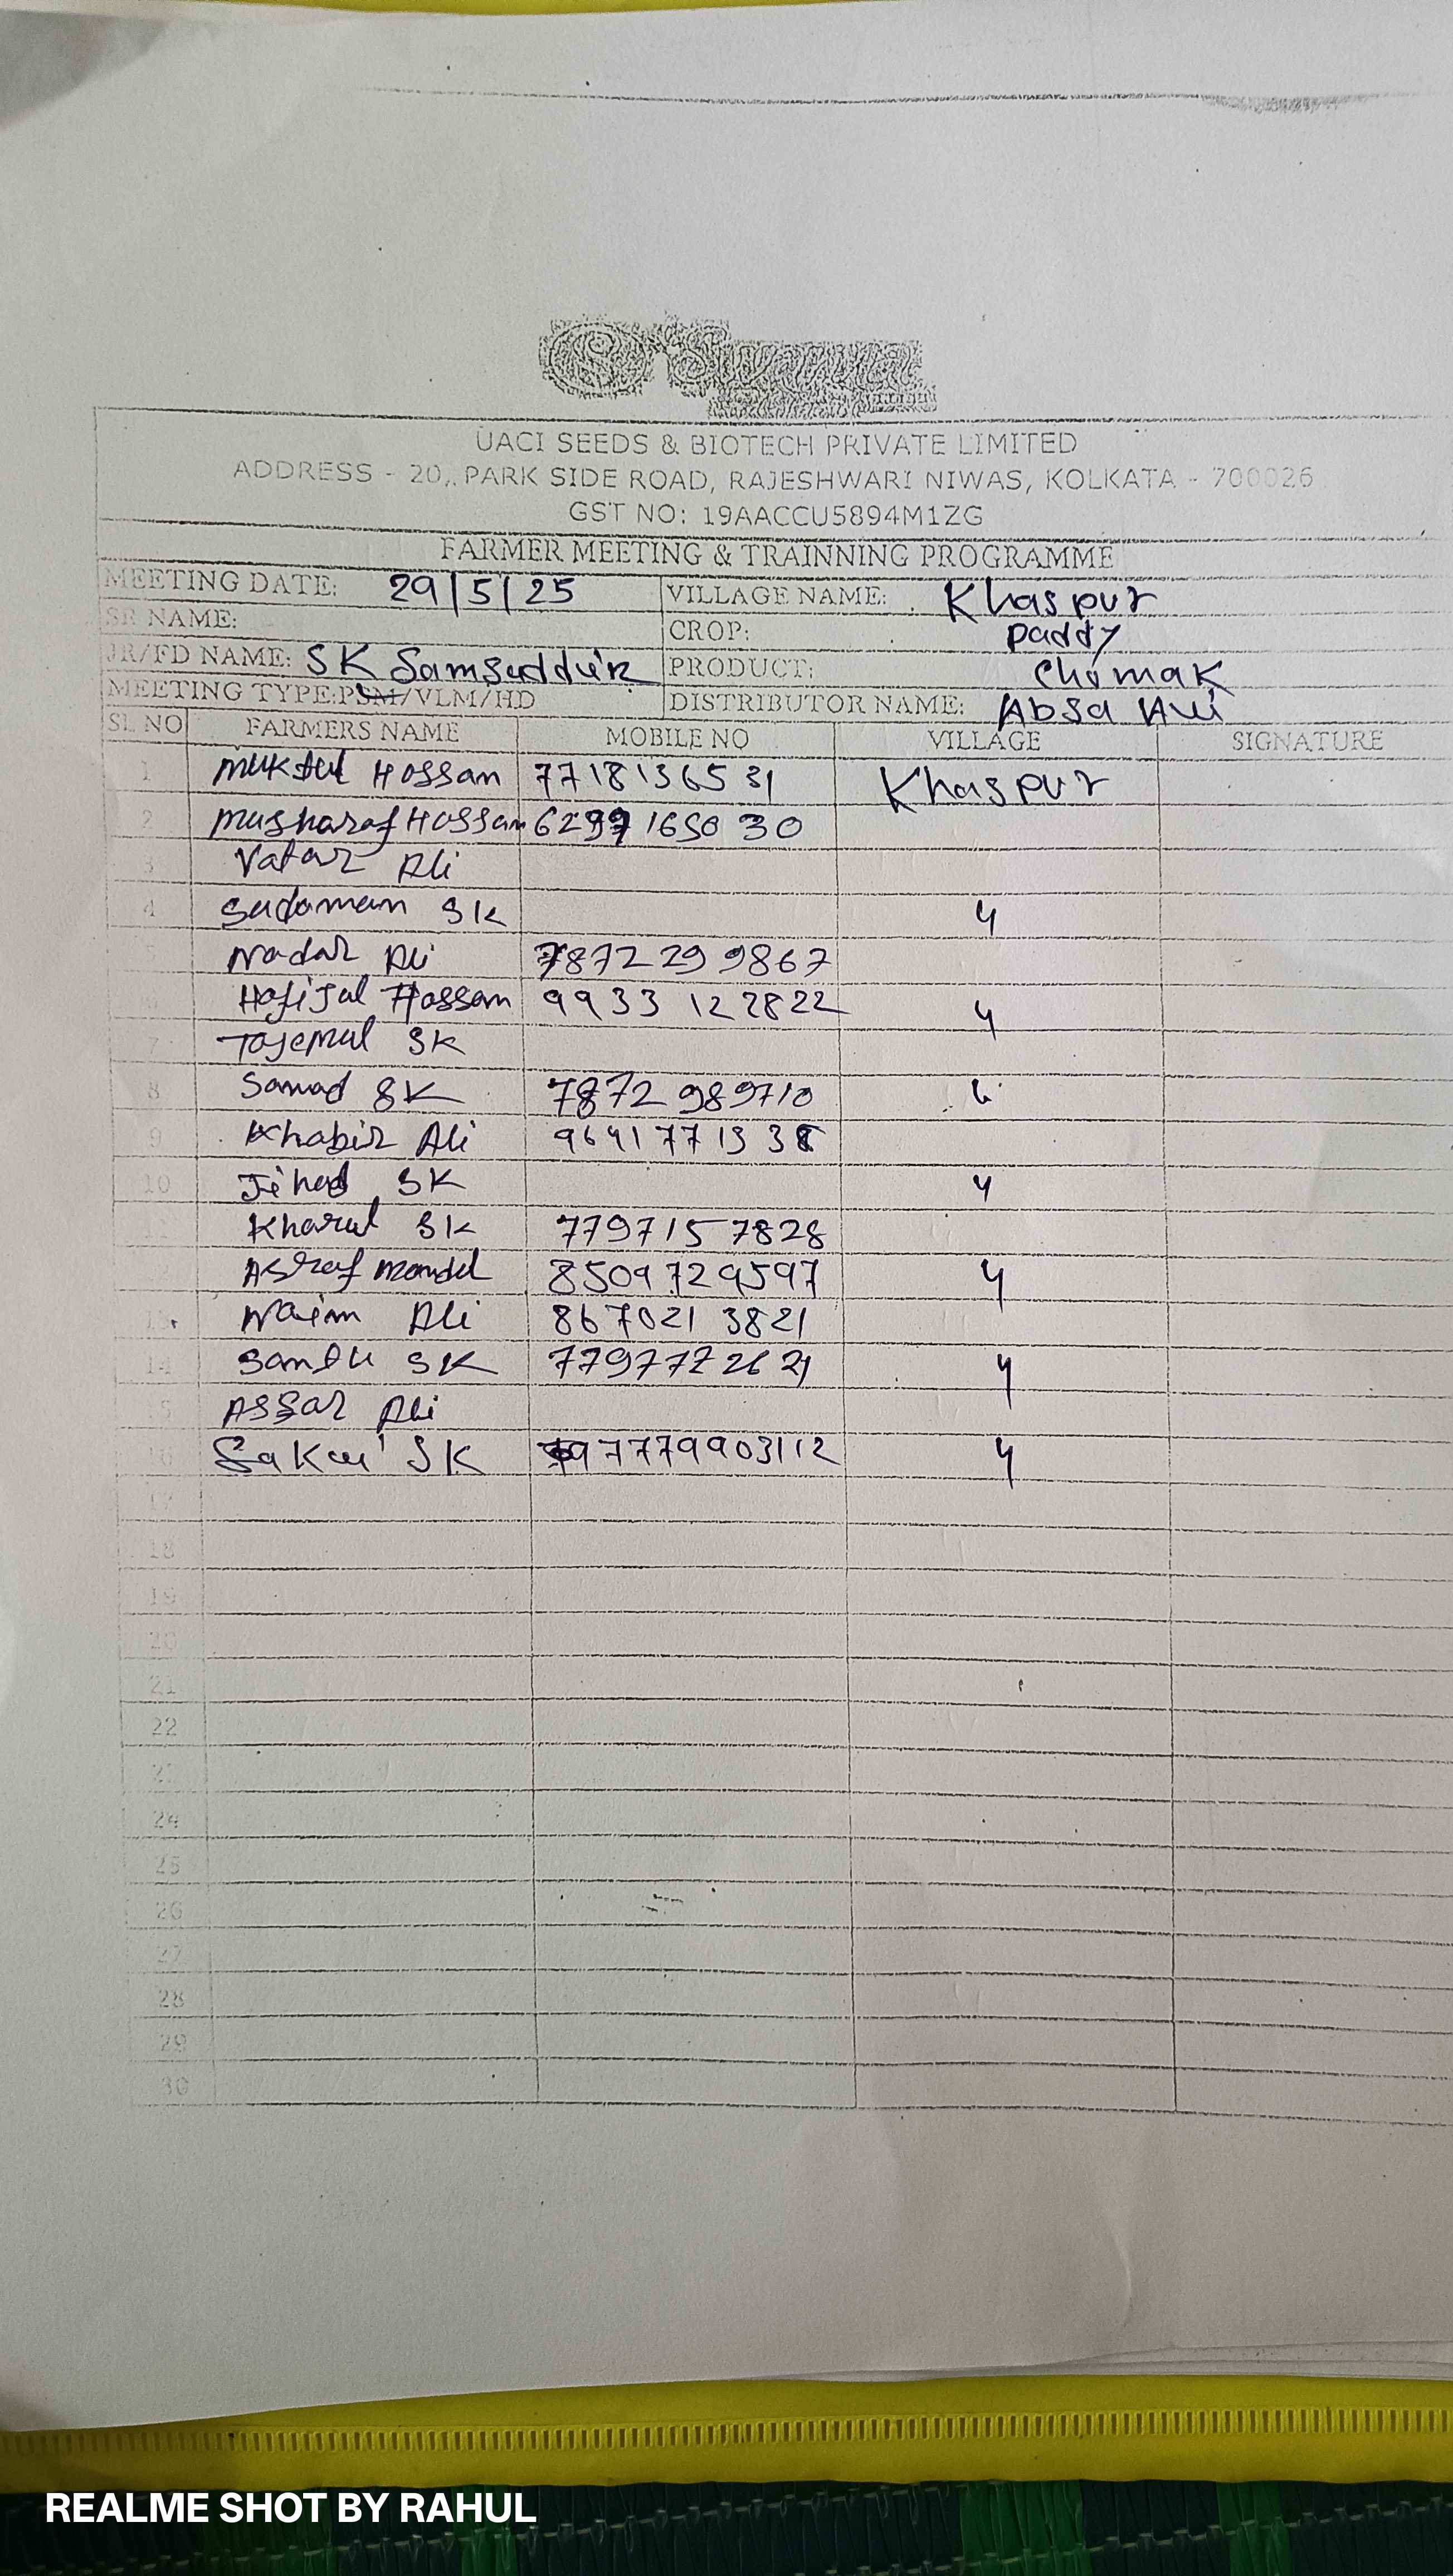 UACI SEEDS & BIOTECH PRIVATE LIMITED
ADDRESS - 20,. PARK SIDE ROAD, RAJESHWARI NIWAS, KOLKATA - 700026
GST NO: 19AACCU5894M1ZG
FARMER MEETING & TRAINNING PROGRAMME
MEETING DATE: 29/5/25 VILLAGE NAME: Khaspur
SR NAME: CROP: Paddy
JR/FD NAME: SK Samsuddin PRODUCT: Chamak
MEETING TYPE:PSM/VLM/HD DISTRIBUTOR NAME: Absa Ali
SL NO FARMERS NAME MOBILE NO VILLAGE SIGNATURE
1 Hossan 7718136531 Khaspur
2 Musharaf Hossan 165030
3 Ali
4 Sudaman SK 4
5 Nadar Ali 7872299867
Hafijul Hossam 9933122822 4
7 Tajemul SK
8 Samad SK 7872989710
9 Khabir Ali
10 Jihad SK 4
Kharul SK 7797157828
Asraf Mondal 8509729597 4
13 Naim Ali 8670213821
14 SK 4
5 Assar Ali
16 SK 4
17
18
19
20
21
22
23
24
25
26
27
28
29
30
REALME SHOT BY RAHUL